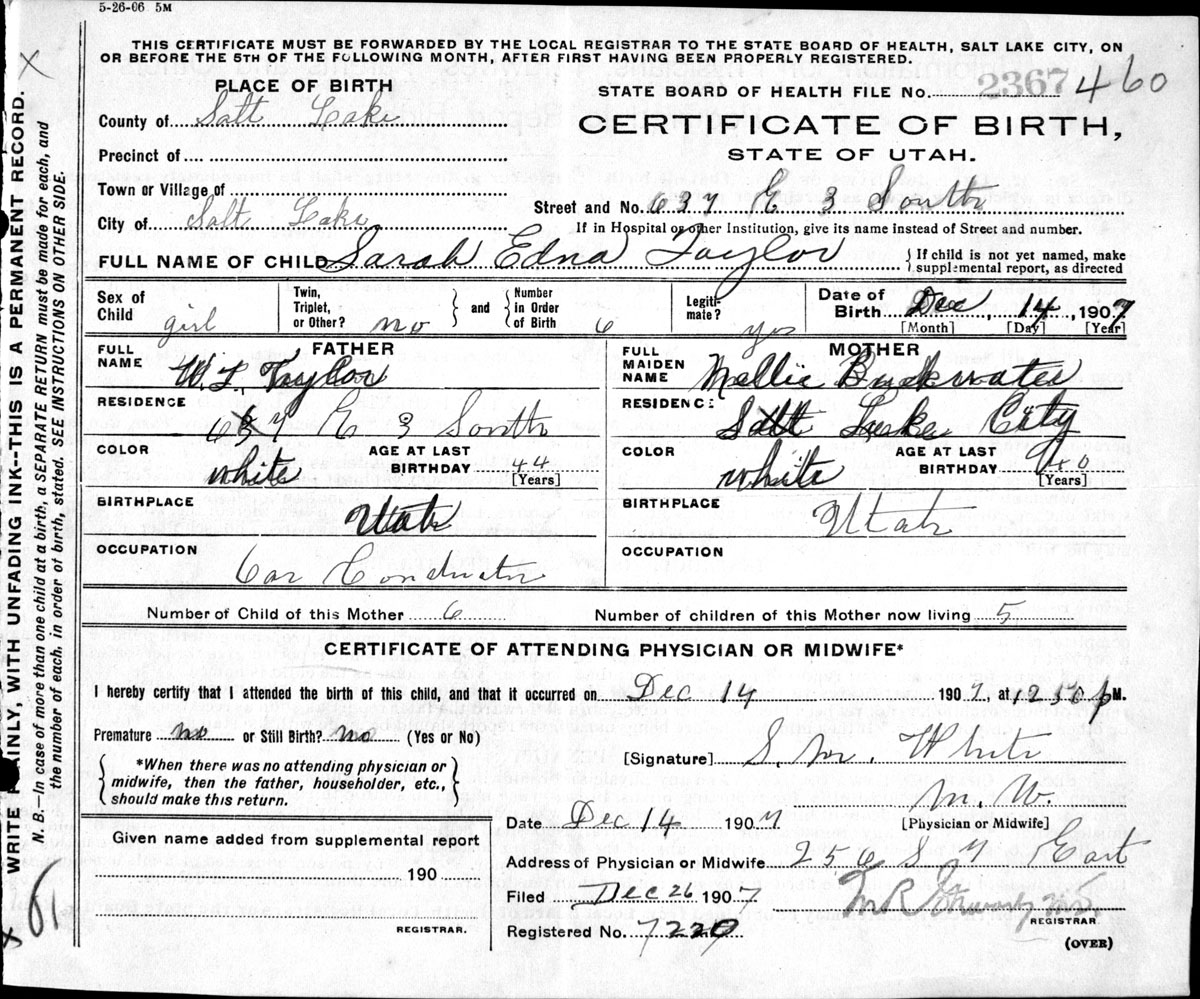 5-26-06 5M
THIS CERTIFICATE MUST BE FORWARDED BY THE LOCAL REGISTRAR TO THE STATE BOARD OF HEALTH, SALT LAKE CITY, ON
OR BEFORE THE 5TH OF THE FOLLOWING MONTH, AFTER FIRST HAVING BEEN PROPERLY REGISTERED.
PLACE OF BIRTH
STATE BOARD OF HEALTH FILE No. 2367 460
County of Salt Lake
CERTIFICATE OF BIRTH,
Precinct of
STATE OF UTAH.
Town or Village of
Street and No. 637 E 3 South
City of Salt Lake
If in Hospital or other Institution, give its name instead of Street and number.
FULL NAME OF CHILD Sarah Edna Taylor
If child is not yet named, make
supplemental report, as directed
Sex of Child girl
Twin, Triplet, or Other? no
and
Number in Order of Birth 6
Legiti-mate? yes
Date of Birth Dec 14, 1907
[Month] [Day] [Year]
FATHER
FULL NAME W. L. Taylor
RESIDENCE 637 E 3 South
COLOR white
AGE AT LAST BIRTHDAY 44
[Years]
BIRTHPLACE Utah
OCCUPATION Car Conductor
MOTHER
FULL MAIDEN NAME Nellie
RESIDENCE Salt Lake City
COLOR white
AGE AT LAST BIRTHDAY 40
[Years]
BIRTHPLACE Utah
OCCUPATION
Number of Child of this Mother 6
Number of children of this Mother now living 5
CERTIFICATE OF ATTENDING PHYSICIAN OR MIDWIFE*
I hereby certify that I attended the birth of this child, and that it occurred on Dec 14 1907, at 1250 p M.
Premature no or Still Birth? no (Yes or No)
[Signature] S. M. White
*When there was no attending physician or
midwife, then the father, householder, etc.,
should make this return.
M. W.
[Physician or Midwife]
Date Dec 14 1907
Given name added from supplemental report
190
REGISTRAR.
Address of Physician or Midwife 256 S 7 East
Filed Dec 26 1907
M.D.
REGISTRAR
Registered No. 7220
(OVER)
WRITE PLAINLY, WITH UNFADING INK--THIS IS A PERMANENT RECORD.
N. B.—In case of more than one child at a birth, a SEPARATE RETURN must be made for each, and
the number of each, in order of birth, stated. SEE INSTRUCTIONS ON OTHER SIDE.